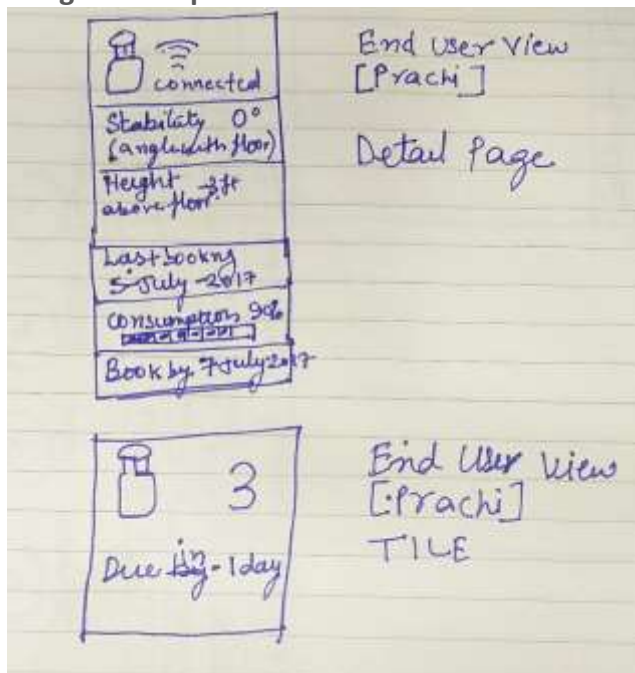 connected
Stability 0°
(angle with floor)
Height 3ft
above floor
Last booking
5-July-2017
Consumption 90%
Book by 7 July 2017
End User View
[Prachi]
Detail Page
3
Due in - 1 day
End User View
[Prachi]
TILE